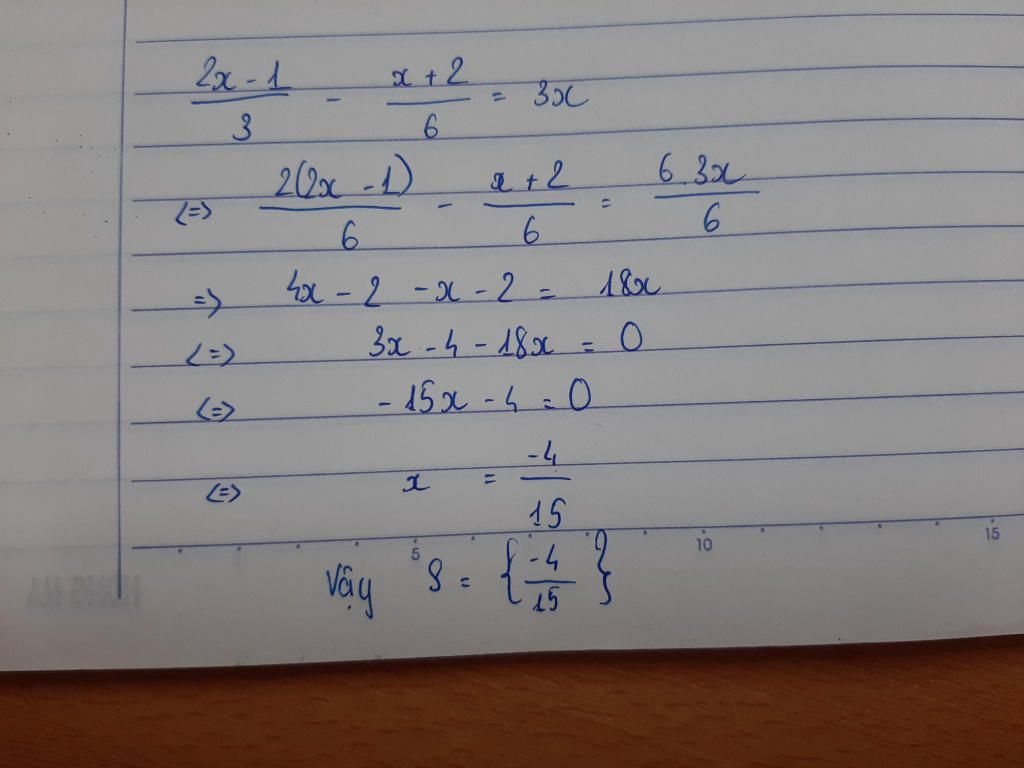 2x - 1 / 3 - x + 2 / 6 = 3x
<=> 2(2x - 1) / 6 - x + 2 / 6 = 6.3x / 6
=> 4x - 2 - x - 2 = 18x
<=> 3x - 4 - 18x = 0
<=> -15x - 4 = 0
<=> x = -4 / 15
5 10 15
Vậy S = { -4 / 15 }